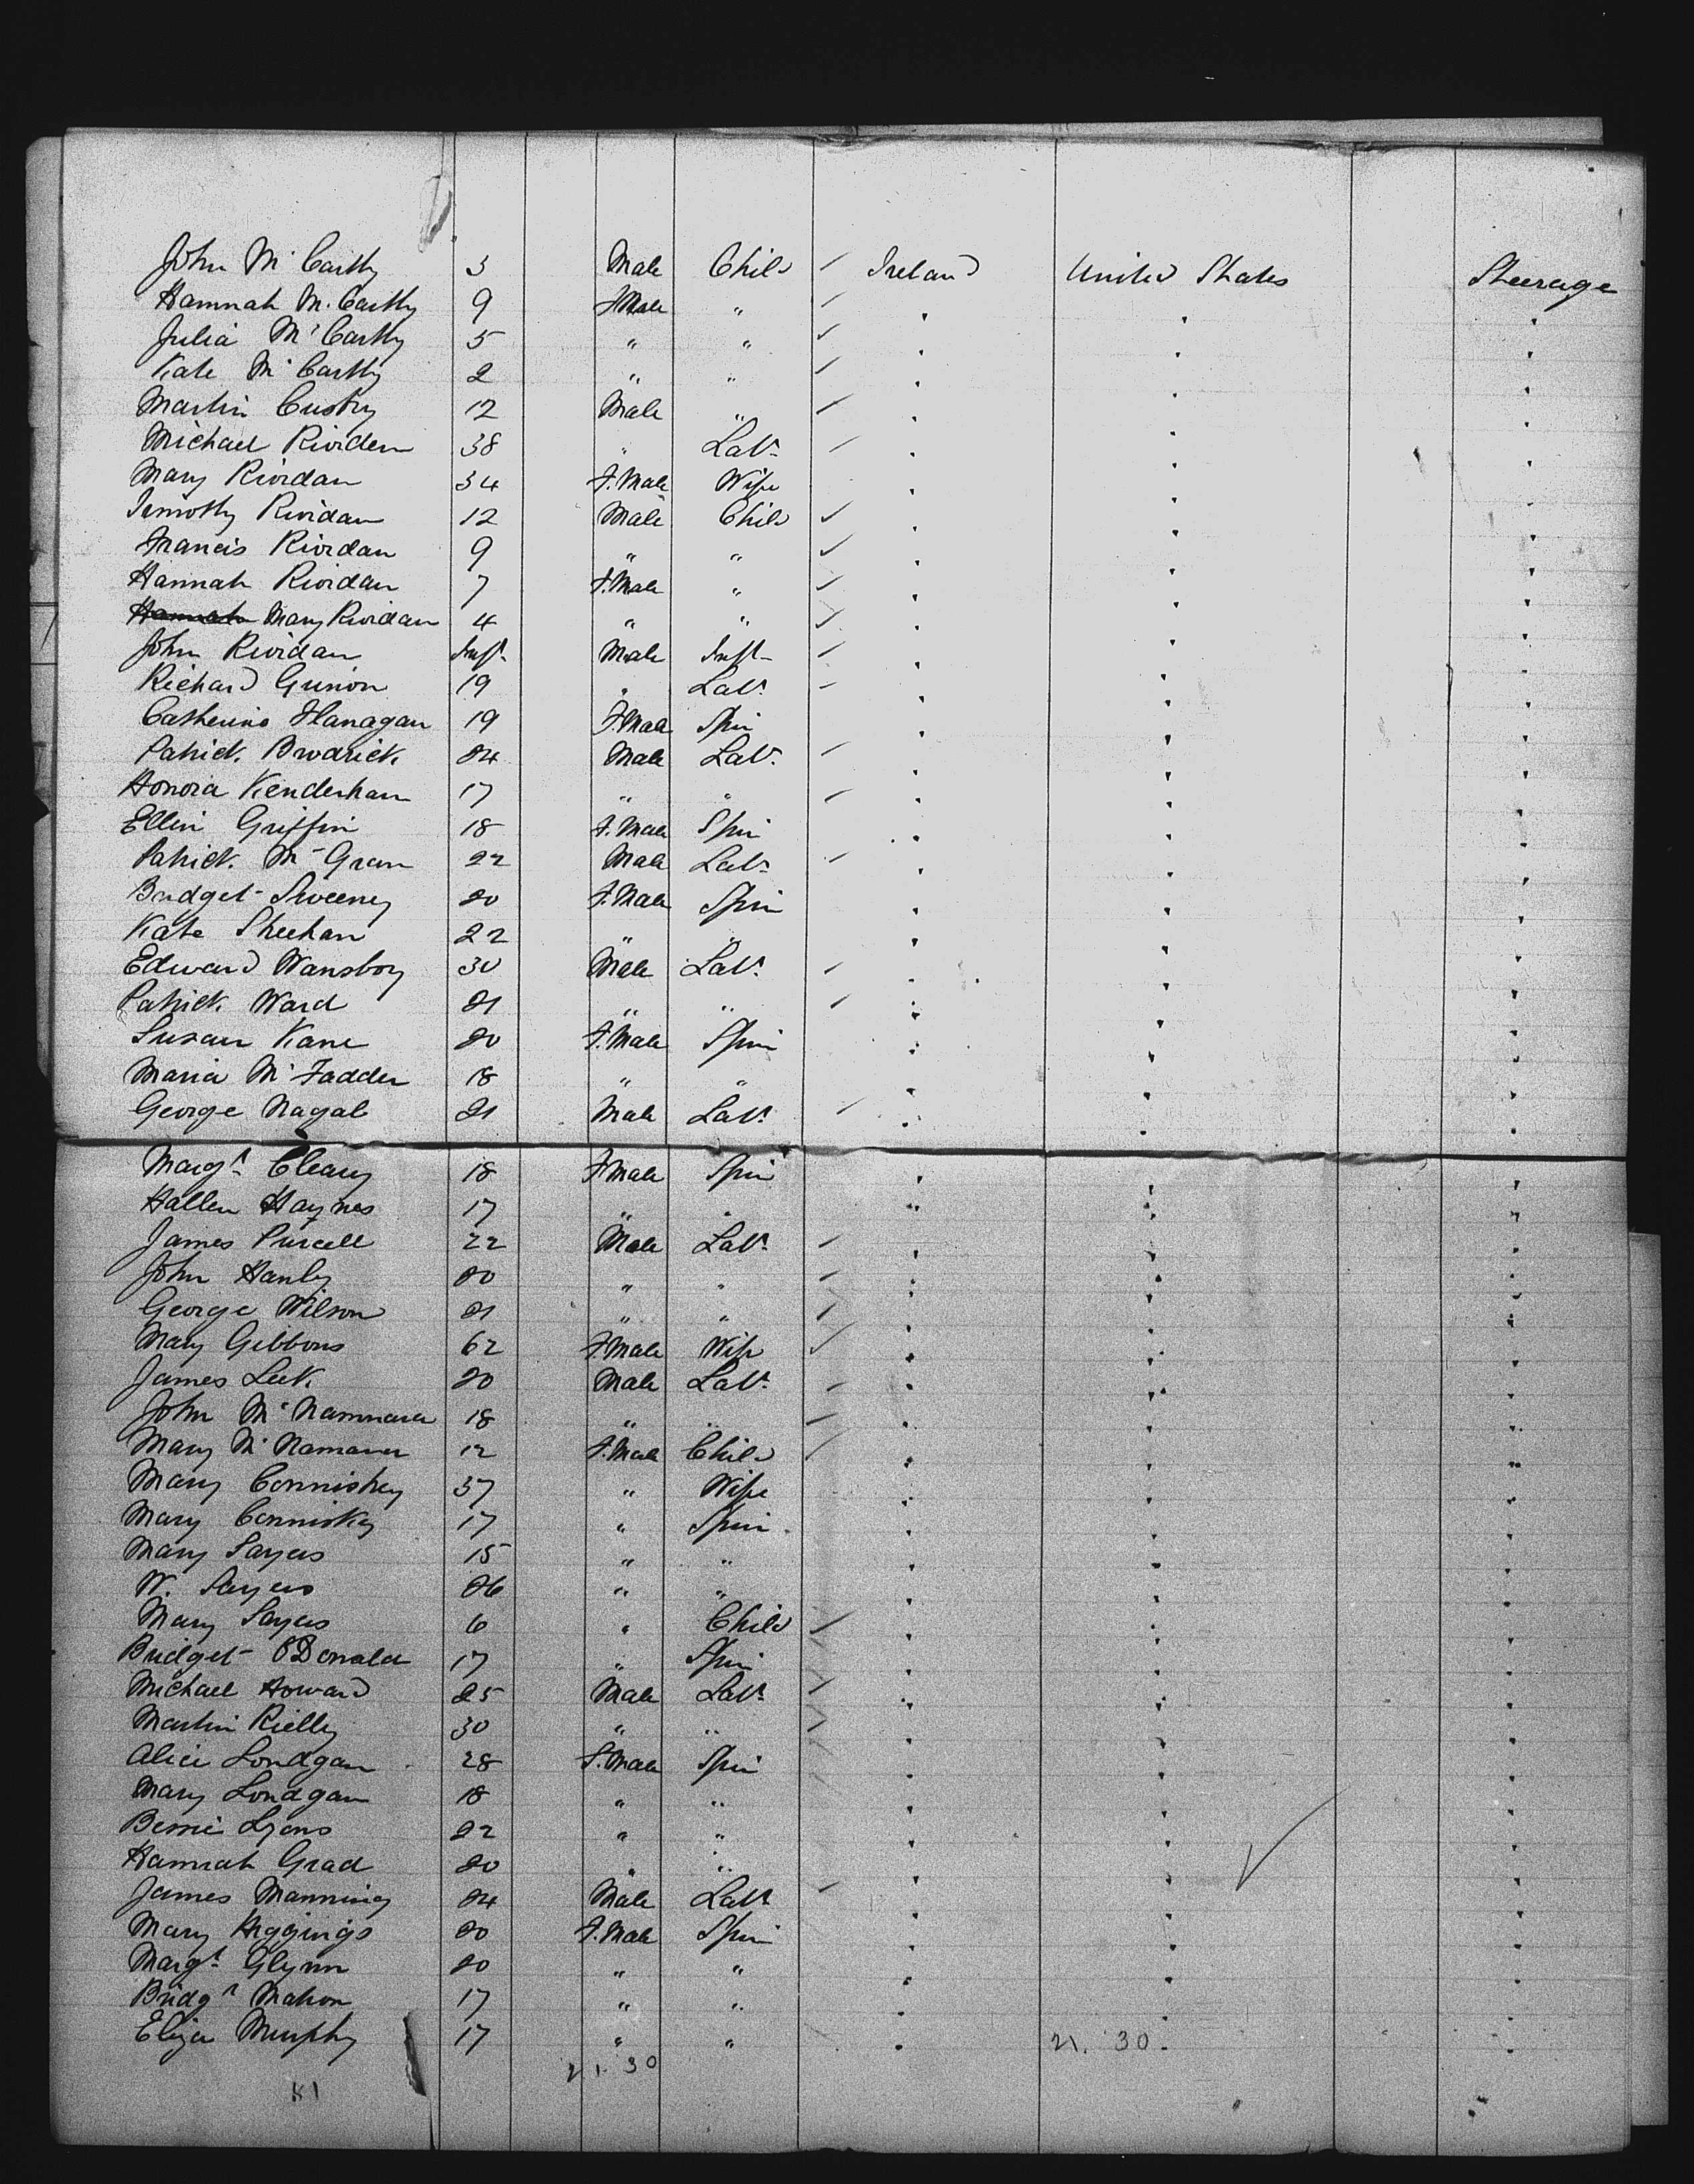 John Mc Carthy 3 Male Child ✓ Ireland United States Steerage
Hannah Mc Carthy 9 F Male " ✓ " " "
Julia Mc Carthy 5 " " ✓ " " "
Kate Mc Carthy 2 " " ✓ " " "
Martin 12 Male " ✓ " " "
Michael Riorden 38 " Labr ✓ " " "
Mary Riordan 34 F. Male Wife " " "
Timothy Riordan 12 Male Child ✓ " " "
Francis Riordan 9 " " ✓ " " "
Hannah Riordan 7 F. Male " ✓ " " "
Hannah Mary Riordan 4 " " ✓ " " "
John Riordan Inft Male Inft ✓ " " "
Richard 19 " Labr ✓ " " "
Catherine Flanagan 19 F. Male Spin " " "
Patrick Brodrick 24 Male Labr ✓ " " "
Honora Kenderhan 17 " " ✓ " " "
Ellin Griffin 18 F. Male Spin " " "
Patrick Mc Gran 22 Male Labr ✓ " " "
Bridget Sweeney 20 F. Male Spin " " "
Kate Sheehan 22 " " " " "
Edward Wansboy 30 Male Labr ✓ " " "
Patrick Ward 21 " " ✓ " " "
Susan Kane 20 F. Male Spin " " "
Maria Mc Fadden 18 " " " " "
George Nagal 21 Male Labr ✓ " " "
Margt Cleary 18 F Male Spin " " "
Hallen Haynes 17 " " " " "
James Purcell 22 Male Labr ✓ " " "
John Hanly 20 " " ✓ " " "
George Wilson 21 " " ✓ " " "
Mary Gibbons 62 F. Male Wife ✓ " " "
James Leek 20 Male Labr ✓ " " "
John Mc Namnara 18 " " ✓ " " "
Mary Mc Namara 12 F. Male Child ✓ " " "
Mary Connishey 37 " Wife " " "
Mary Connisky 17 " Spin " " "
Mary Sayers 15 " " " " "
W. Sayers 26 " " " " "
Mary Sayers 6 " Child ✓ " " "
Bridget O'Donald 17 " Spin " " "
Michael Howard 25 Male Labr ✓ " " "
Martin Rielly 30 " " ✓ " " "
Alice Londgan 28 F. Male Spin " " "
Mary Londgan 18 " " " " "
Bessie Lyons 22 " " " " "
Hannah Grad 20 " " " " "
James Manning 24 Male Labr ✓ " " "
Mary Higgings 20 F. Male Spin " " "
Margt Glynn 20 " " " " "
Bridgt Mahon 17 " " " " "
Eliza Murphy 17 " " " 21. 30. "
21. 30
51